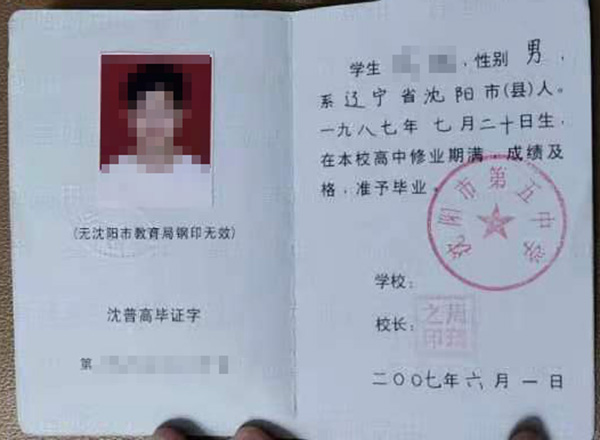 (无沈阳市教育局钢印无效)
沈普高毕证字
第
学生 、性别 男,
系辽宁省沈阳市(县)人。
一九八七年 七月二十日生,
在本校高中修业期满,成绩及
格,准予毕业。
沈阳市第五中学
学校:
校长:
二〇〇七年六月一日